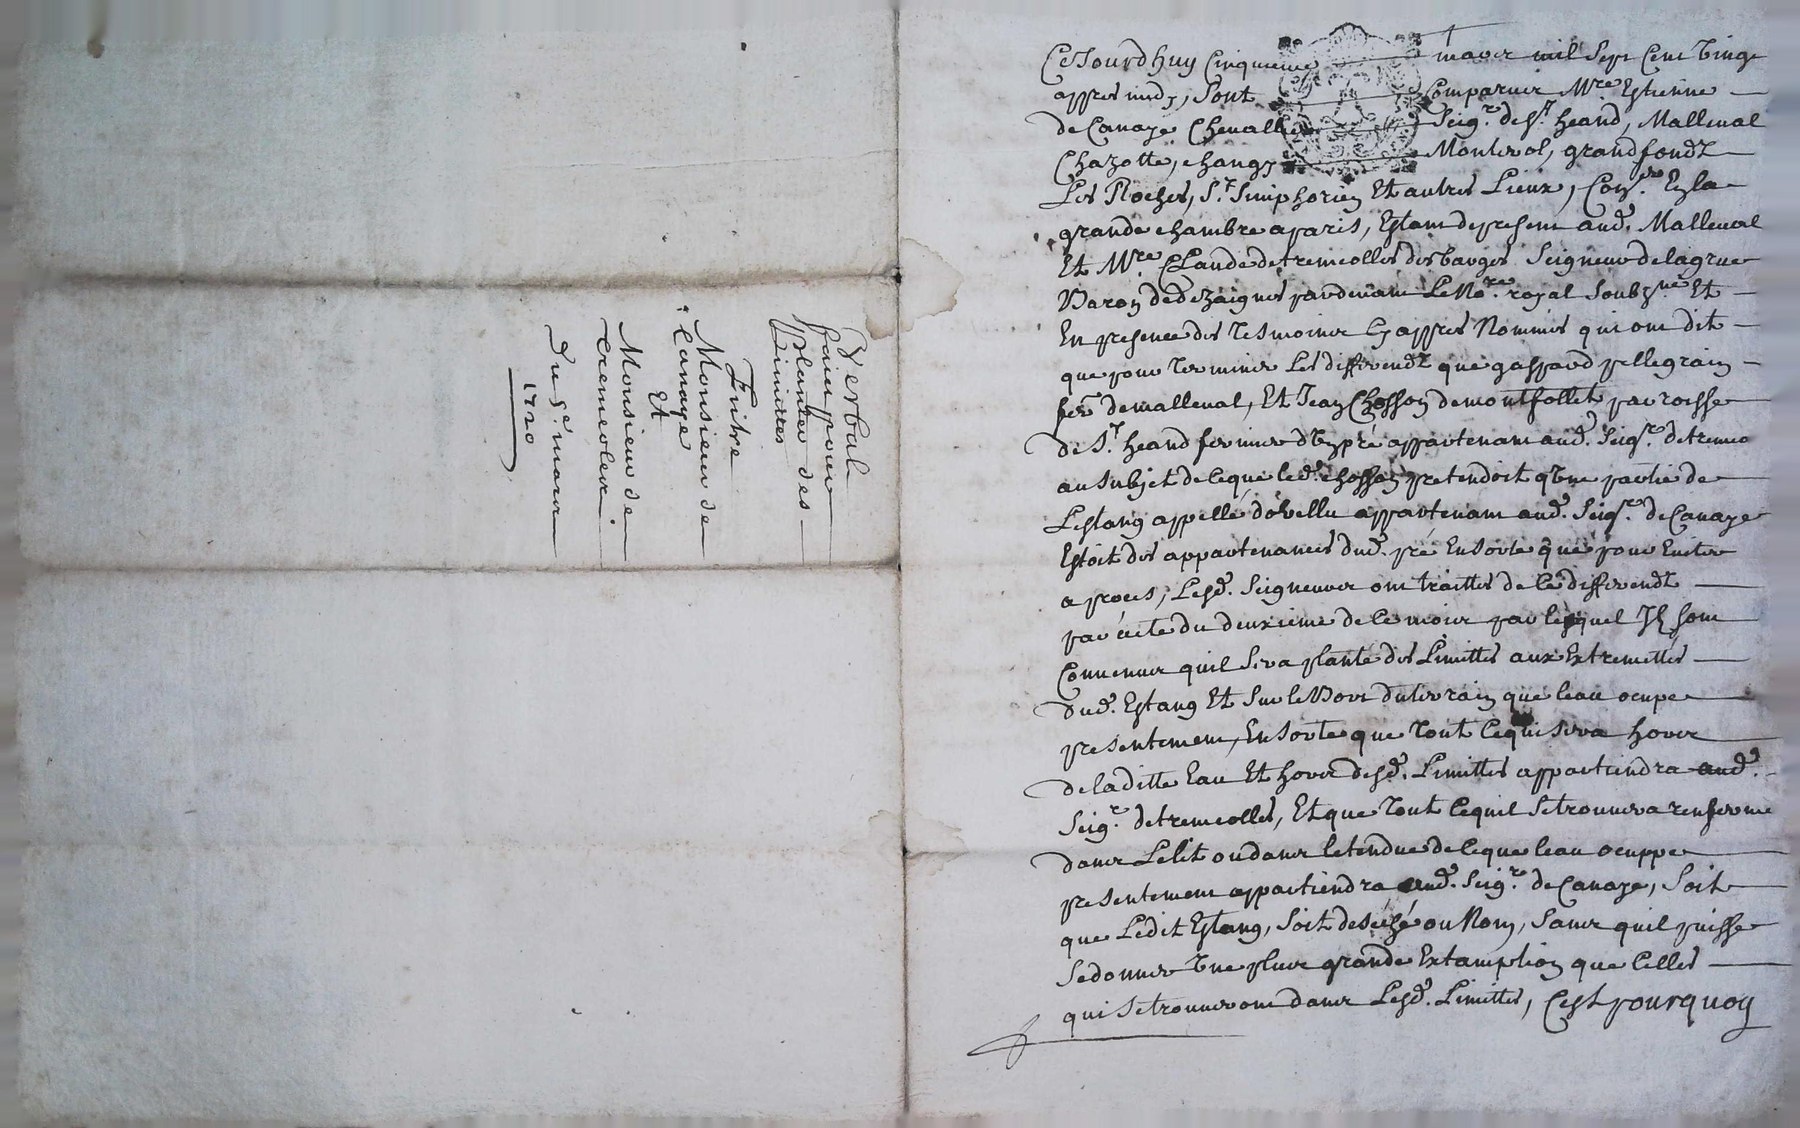 Verbal
fait pour
planter des
Limittes
Entre
Monsieur de
Canaye
Et
Monsieur de
Tremeoles
Du 5e. mars
1720
Cejourdhuy Cinquieme mars mil sept Cent vingt
appres midy, sont Comparus Mre. Estienne
de Canaye Chevallier Seigr. de St. heand, Malleval
Chazotte, changy Montverol, grandfondz
Les Roches, St. Simphorien Et autres Lieux, Conser. En la
grande chambre a paris, Estant de present aud. Malleval
Et Mre. Claude de tremeolles des barges Seigneur de lagrue
Baron de dezaignes pardevant Le Nore. royal soubzne. Et
En presence des tesmoins Cy appres Nommés qui ont dit
que pour terminer Les differendz que gaspard pellegrain
fer. de malleval, Et Jean Chosson de montfollet parroisse
de St. heand fermier d'un pré appartenant aud. Seigr. de tremeo
au subjet de ce que led. chosson pretendoit qune partie de
L'estang appellé appartenant aud. Seigr. de Canaye
Estoit des appartenances dud. pré En sorte que pour Eviter
a proces, Lesd. Seigneurs ont traittés de ce differendz
par acte du deuxieme de ce mois par lequel Ils sont
Convenus quil sera planté des Limittes aux Extremittés
dud. Estang Et sur le Bort du terrain que leau ocupe
presentement, En sorte que tout ce qui sera hors
de laditte Eau Et hors desd. Limittes appartiendra aud.
Seigr. de tremeolles, Et que tout ce quil se trouvera renfermé
dans Le lit ou dans letendue de ce que leau ocuppe
presentement appartiendra aud. Seigr. de Canaye, Soit
que Ledit Estang, soit deseché ou Non, sans quil puisse
se donner une plus grande Extamption que Celles
qui se trouveront dans Lesd. Limittes, Cest pourquoy